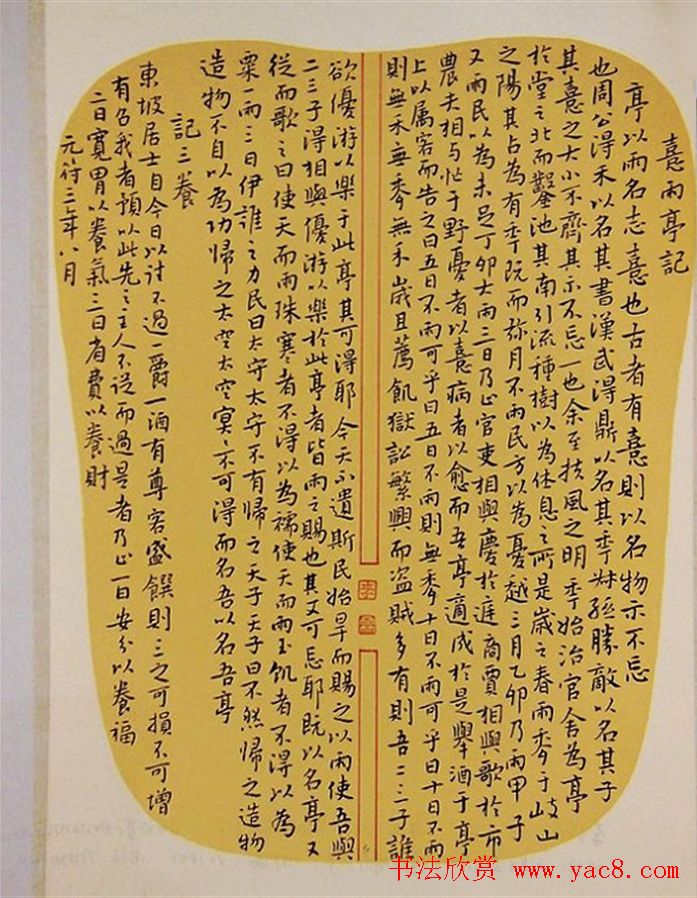 喜雨亭記
亭以雨名志喜也古者有喜則以名物示不忘
也周公得禾以名其書漢武得鼎以名其年叔孫勝敵以名其子
其喜之大小不齊其示不忘一也余至扶風之明年始治官舍為亭
於堂之北而鑿池其南引流種樹以為休息之所是歲之春雨麥于岐山
之陽其占為有年既而彌月不雨民方以為憂越三月乙卯乃雨甲子
又雨民以為未足丁卯大雨三日乃止官吏相與慶於庭商賈相與歌於市
農夫相与忭于野憂者以喜病者以愈而吾亭適成於是舉酒于亭
上以屬客而告之曰五日不雨可乎曰五日不雨則無麥十日不雨可乎曰十日不雨
則無禾無麥無禾歲且薦飢獄訟繁興而盜賊多有則吾二三子誰
欲優游以樂于此亭其可得耶今天不遺斯民始旱而賜之以雨使吾與
二三子得相與優游以樂於此亭者皆雨之賜也其又可忘耶既以名亭又
從而歌之曰使天而雨珠寒者不得以為襦使天而雨玉飢者不得以為
粟一雨三日伊誰之力民曰太守太守不有歸之天子天子曰不然歸之造物
造物不自以為功歸之太空太空冥々不可得而名吾以名吾亭
記三養
東坡居士自今日以計不過一爵一酒有尊客盛饌則三之可損不可增
有召我者預以此先之主人不從而過是者乃止一曰安分以養福
二曰寬胃以養氣三曰省費以養財
元符三年八月
书法欣赏 www.yac8.com